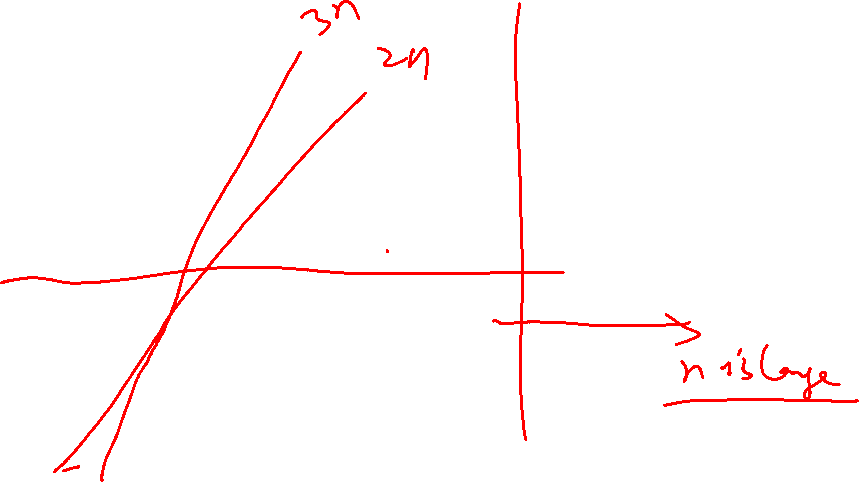 3n
2n
n is large